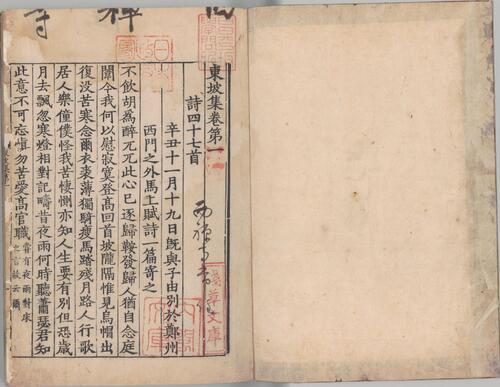 東坡集卷第一
詩四十七首
辛丑十一月十九日旣與子由別於鄭州
西門之外馬上賦詩一篇寄之
不飲胡爲醉兀兀此心已逐歸鞍發歸人猶自念庭
闈今我何以慰寂寞登高回首坡隴隔惟見烏帽出
復沒苦寒念爾衣裘薄獨騎瘦馬踏殘月路人行歌
居人樂僮僕怪我苦悽惻亦知人生要有別但恐歲
月去飄忽寒燈相對記疇昔夜雨何時聽蕭瑟君知
此意不可忘愼勿苦愛高官職
嘗有夜雨對牀
之言故云爾
淺草文庫